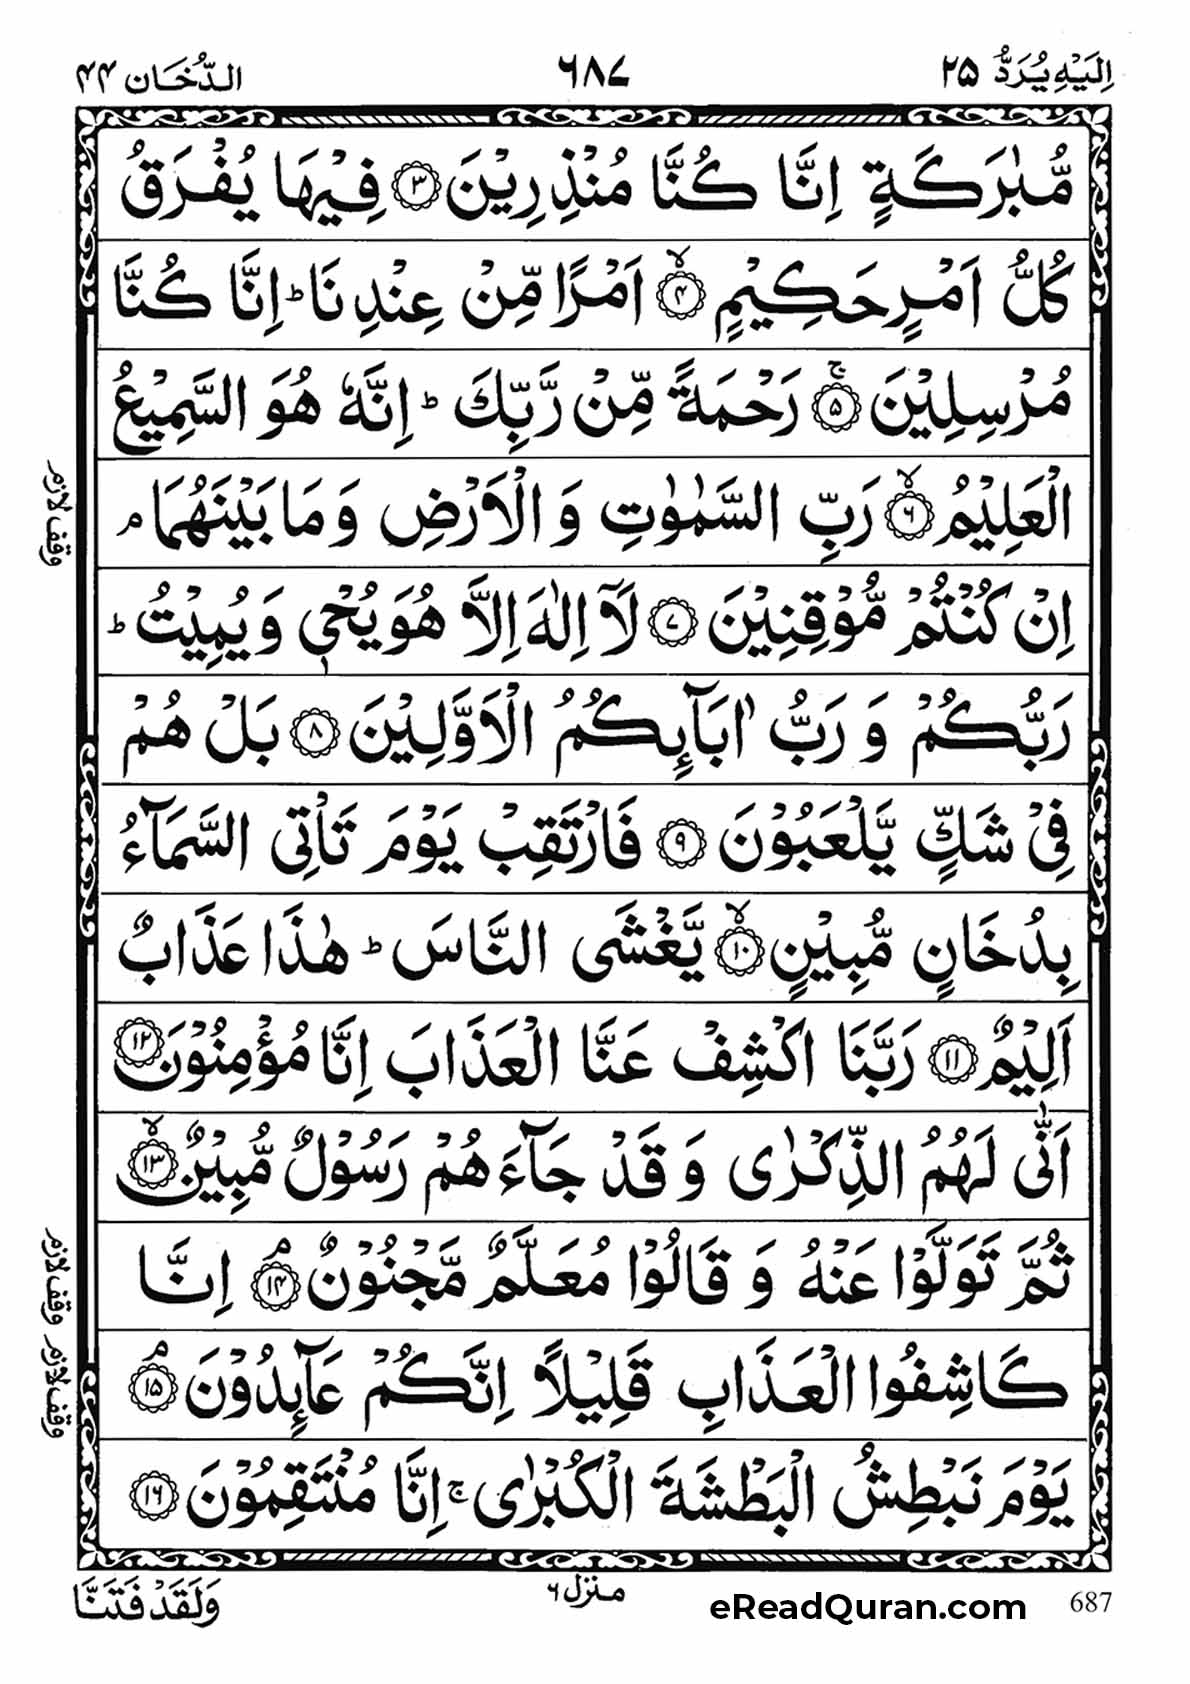 اِلَيْهِ يُرَدُّ ٢٥
٦٨٧
الدُّخَان ٤٤
مُّبٰرَكَةٍ اِنَّا كُنَّا مُنْذِرِيْنَ ۝٣ فِيْهَا يُفْرَقُ
كُلُّ اَمْرٍ حَكِيْمٍ ۝٤ۙ اَمْرًا مِّنْ عِنْدِنَا ؕ اِنَّا كُنَّا
مُرْسِلِيْنَ ۝٥ۚ رَحْمَةً مِّنْ رَّبِّكَ ؕ اِنَّهٗ هُوَ السَّمِيْعُ
الْعَلِيْمُ ۝٦ۙ رَبِّ السَّمٰوٰتِ وَ الْاَرْضِ وَ مَا بَيْنَهُمَا ۘ
وقف لازم
اِنْ كُنْتُمْ مُّوْقِنِيْنَ ۝٧ لَاۤ اِلٰهَ اِلَّا هُوَ يُحْيٖ وَ يُمِيْتُ ؕ
رَبُّكُمْ وَ رَبُّ اٰبَآىِٕكُمُ الْاَوَّلِيْنَ ۝٨ بَلْ هُمْ
فِيْ شَكٍّ يَّلْعَبُوْنَ ۝٩ فَارْتَقِبْ يَوْمَ تَاْتِى السَّمَآءُ
بِدُخَانٍ مُّبِيْنٍ ۝١٠ۙ يَّغْشَى النَّاسَ ؕ هٰذَا عَذَابٌ
اَلِيْمٌ ۝١١ رَبَّنَا اكْشِفْ عَنَّا الْعَذَابَ اِنَّا مُؤْمِنُوْنَ ۝١٢
اَنّٰى لَهُمُ الذِّكْرٰى وَ قَدْ جَآءَهُمْ رَسُوْلٌ مُّبِيْنٌ ۝١٣ۙ
ثُمَّ تَوَلَّوْا عَنْهُ وَ قَالُوْا مُعَلَّمٌ مَّجْنُوْنٌ ۝١٤ۘ اِنَّا
وقف لازم
كَاشِفُوا الْعَذَابِ قَلِيْلًا اِنَّكُمْ عَآىِٕدُوْنَ ۝١٥ۘ
وقف لازم
يَوْمَ نَبْطِشُ الْبَطْشَةَ الْكُبْرٰى ۚ اِنَّا مُنْتَقِمُوْنَ ۝١٦
687
eReadQuran.com
منزل ٦
وَلَقَدْ فَتَنَّا